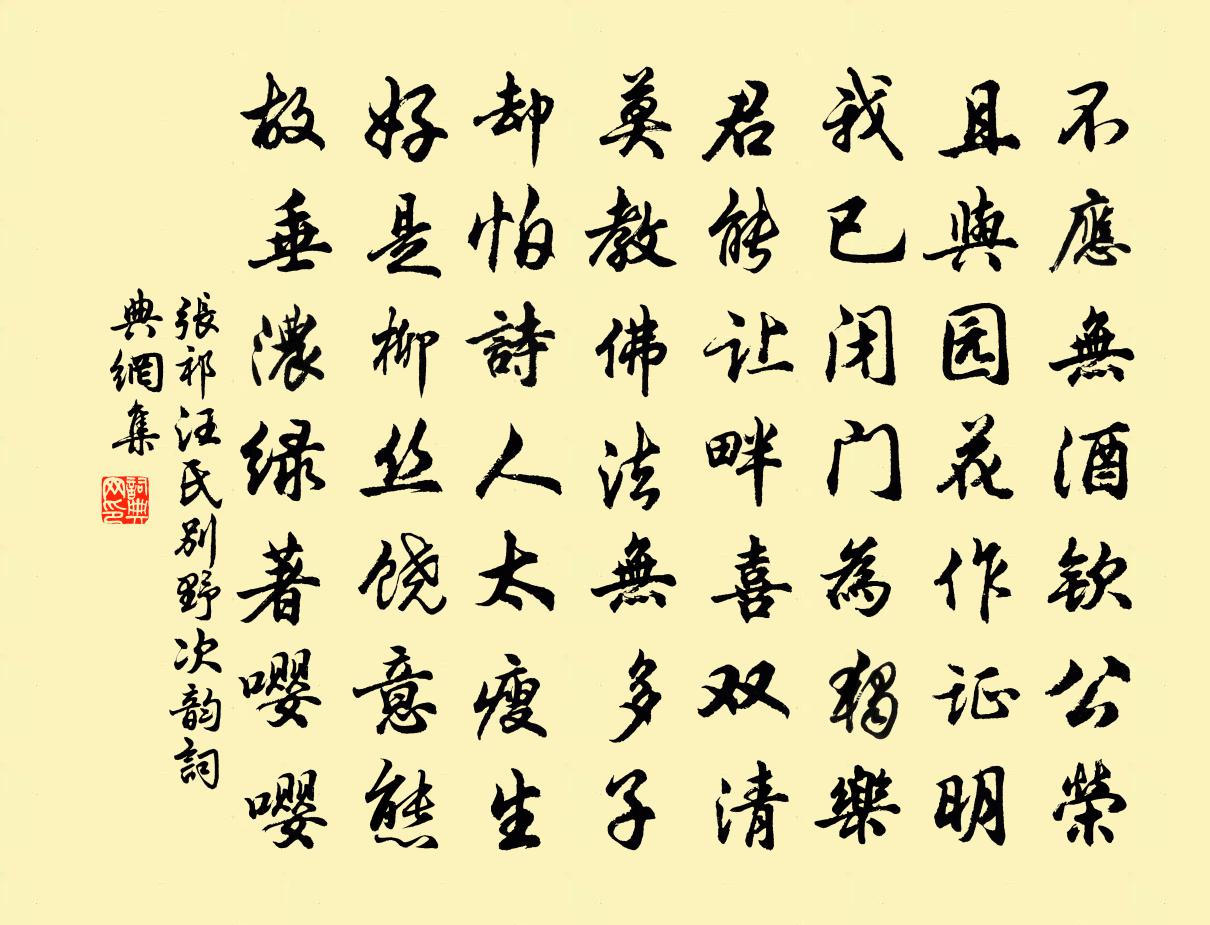 不應無酒钦公榮
且與园花作证明
我已闭门為獨樂
君能让畔喜双清
莫教佛法無多子
却怕詩人太瘦生
好是柳丝饶意態
故垂濃绿著嘤嘤
張祁汪氏别野次韵詞
典網集
詞典
网印